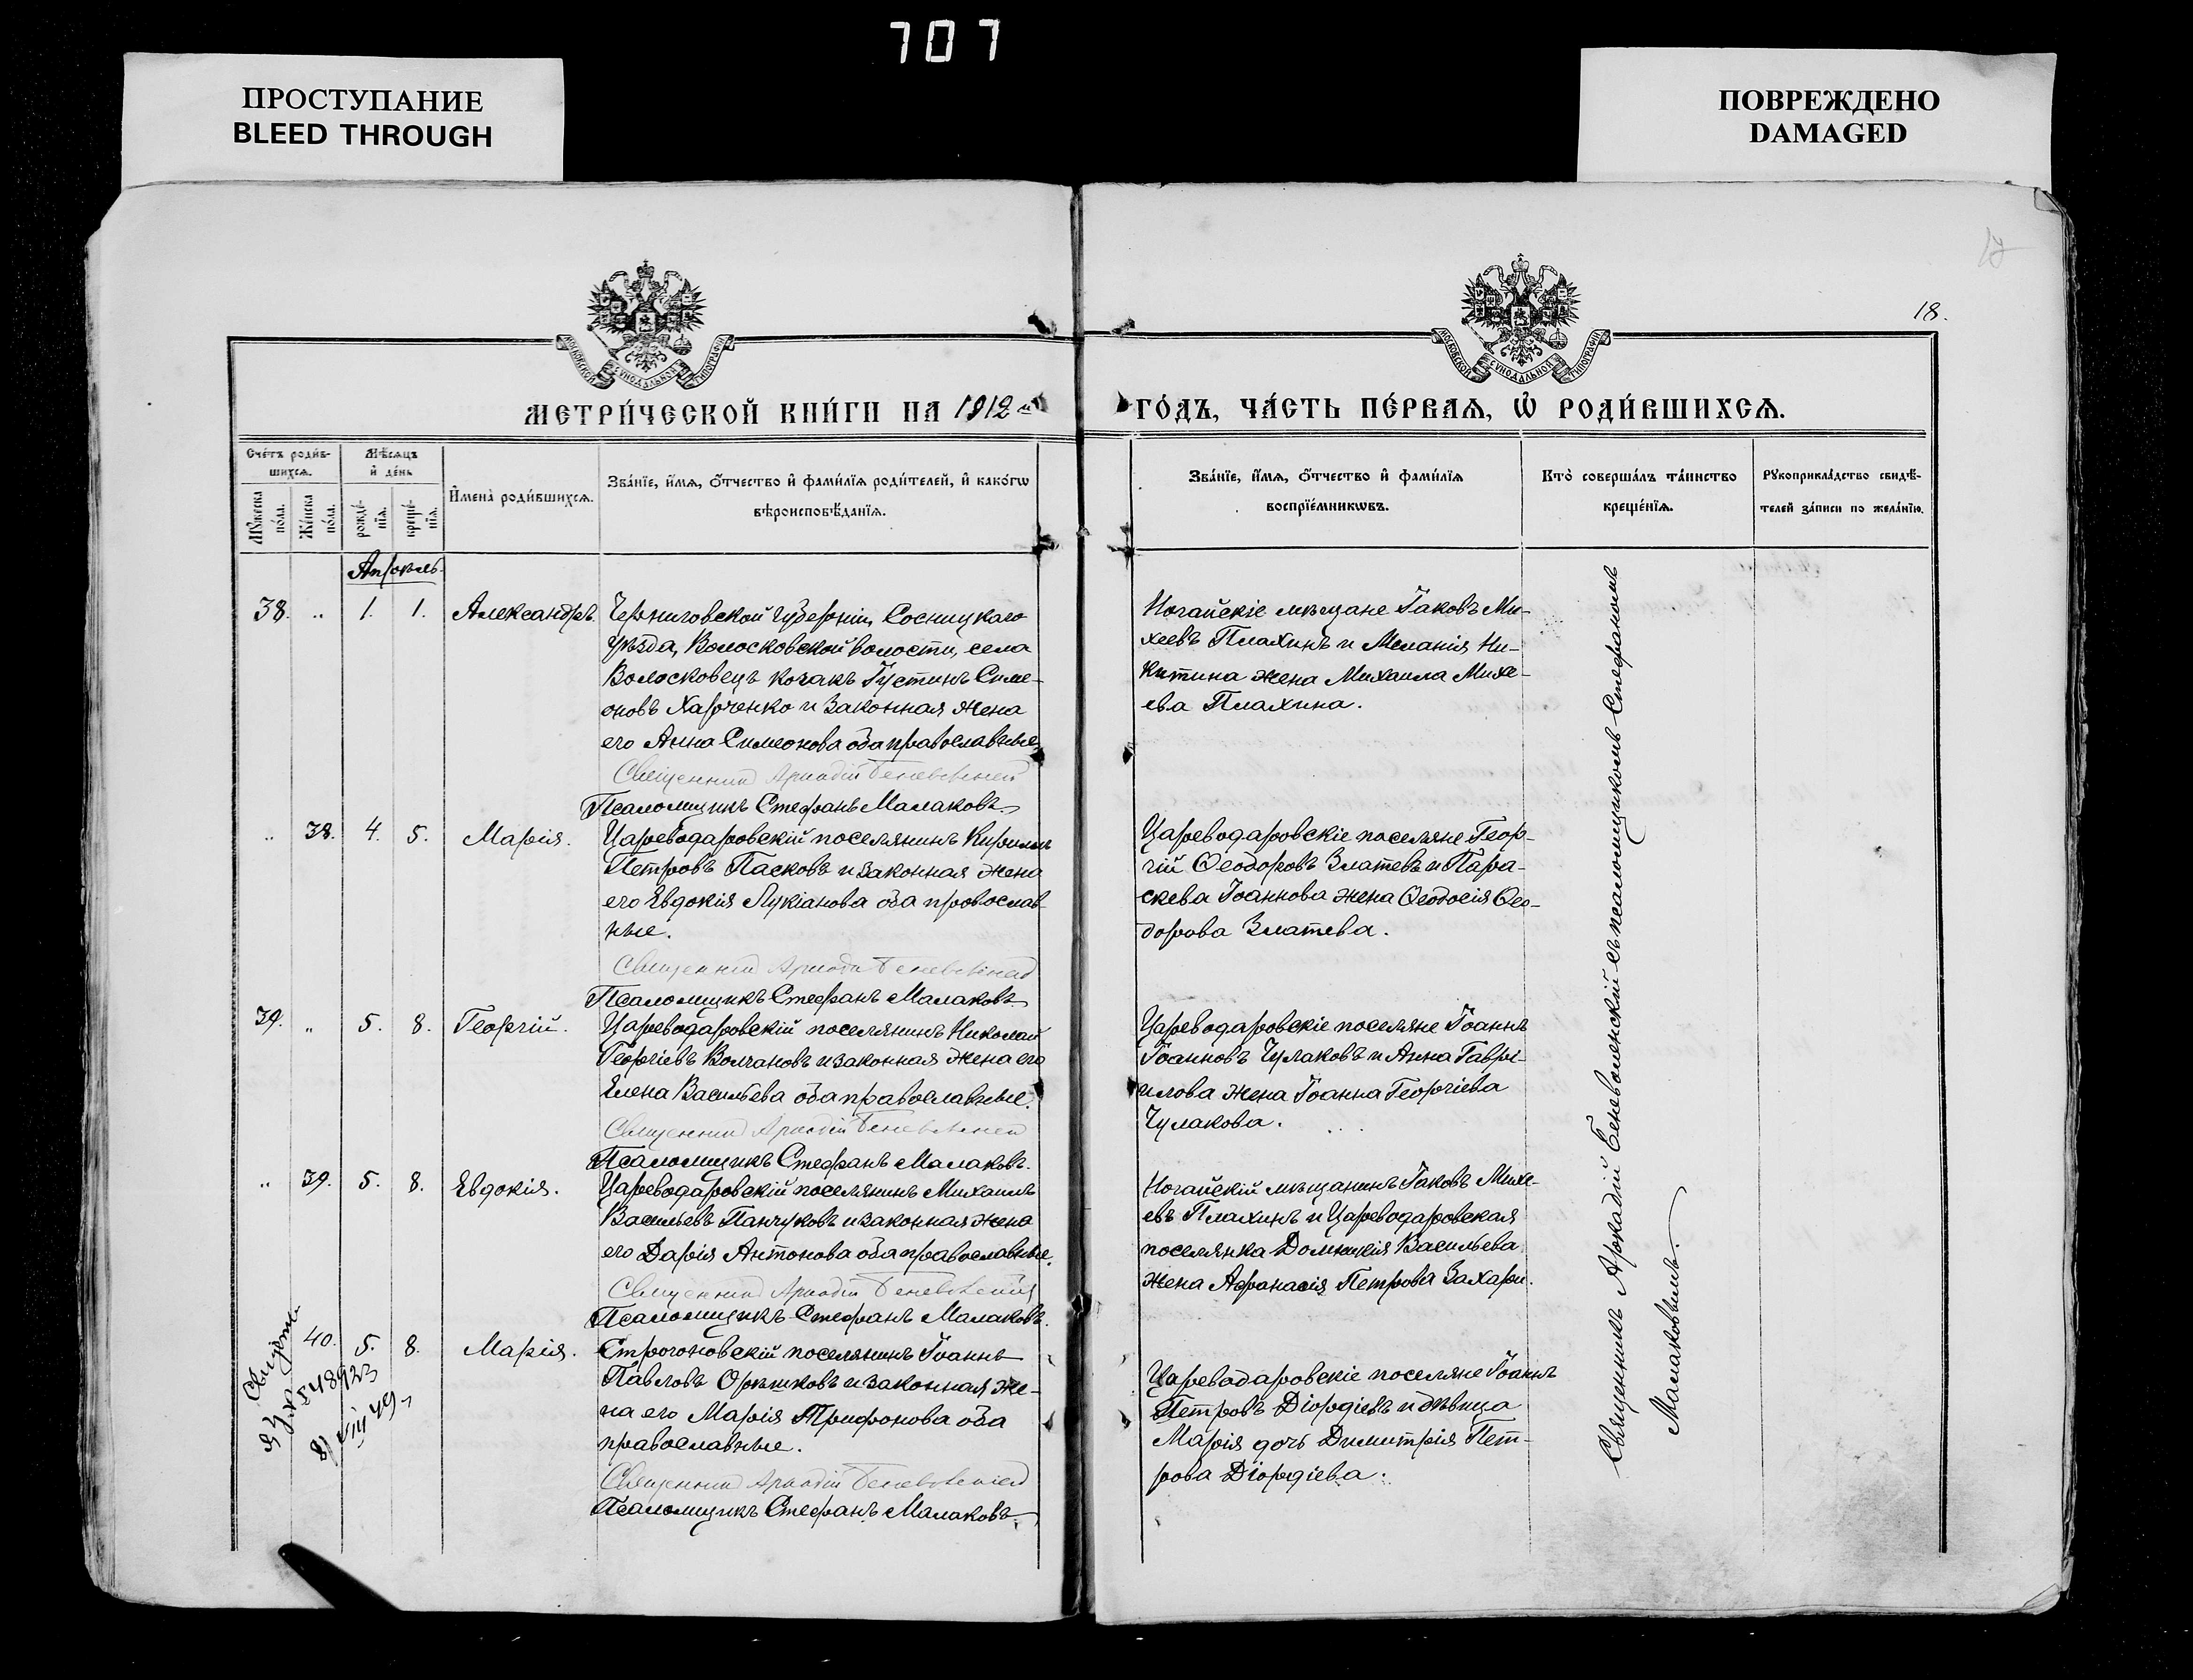 707
ПРОСТУПАНИЕ
BLEED THROUGH
ПОВРЕЖДЕНО
DAMAGED
18.
МОСКОВСКОЙ СѴНОДАЛЬНОЙ ТИПОГРАФІИ
МОСКОВСКОЙ СѴНОДАЛЬНОЙ ТИПОГРАФІИ
МЕТРИ́ЧЕСКОЙ КНИ́ГИ НА 1912 й
ГО́ДЪ, ЧА́СТЬ ПЕ́РВАѦ, Ѡ҆ РОДИ́ВШИХСѦ.
Сче́тъ роди́в-
шихсѧ.
Мꙋ́жеска по́ла.
Же́нска по́ла.
Мѣ́сѧцъ
и҆ де́нь
рожде́-
нїѧ.
креще́-
нїѧ.
И҆мена̀ роди́вшихсѧ.
Зва́нїе, и҆́мѧ, ѻ҆́тчество и҆ фами́лїѧ роди́телей, и҆ како́гѡ
вѣроисповѣ́данїѧ.
Зва́нїе, и҆́мѧ, ѻ҆́тчество и҆ фами́лїѧ
воспрїе́мникѡвъ.
Кто̀ соверша́лъ та́инство
креще́нїѧ.
Рꙋкоприкла́дство свидѣ́-
телей за́писи по жела́нїю.
Апрѣль.
38. .. 1. 1. Александръ.
Черниговской губерніи, Сосницкаго
уѣзда, Волосковской волости, села
Волосковецъ козакъ Іустинъ Симе-
оновъ Харченко и законная жена
его Анна Симеонова оба православные.
Священникъ Аркадій Беневоленскій
Псаломщикъ Стефанъ Малаковъ.
Ногайскіе мѣщане Іаковъ Ми-
хеевъ Плахинъ и Меланія Ни-
китина жена Михаила Михе-
ева Плахина.
.. 38. 4. 5. Марія.
Цареводаровскій поселянинъ Кириллъ
Петровъ Пасковъ и законная жена
его Евдокія Лукіанова оба православ-
ные.
Священникъ Аркадій Беневоленскій
Псаломщикъ Стефанъ Малаковъ.
Цареводаровскіе поселяне Геор-
гій Ѳеодоровъ Златевъ и Пара-
скева Іоаннова жена Ѳеодосія Ѳео-
дорова Златева.
39. .. 5. 8. Георгій.
Цареводаровскій поселянинъ Николай
Георгіевъ Волчановъ и законная жена его
Елена Васильева оба православные.
Священникъ Аркадій Беневоленскій
Псаломщикъ Стефанъ Малаковъ.
Цареводаровскіе поселяне Іоаннъ
Іоанновъ Чулаковъ и Анна Гаврі-
илова жена Іоанна Георгіева
Чулакова.
.. 39. 5. 8. Евдокія.
Цареводаровскій поселянинъ Михаилъ
Васильевъ Панчуковъ и законная жена
его Дарія Антонова оба православные.
Священникъ Аркадій Беневоленскій
Псаломщикъ Стефанъ Малаковъ.
Ногайскій мѣщанинъ Іаковъ Михе-
евъ Плахинъ и Цареводаровская
поселянка Домникія Васильева
жена Аѳанасія Петрова Захари.
40. 5. 8. Марія.
Строгоновскій поселянинъ Іоаннъ
Павловъ Орѣшковъ и законная же-
на его Марія Трифонова оба
православные.
Священникъ Аркадій Беневоленскій
Псаломщикъ Стефанъ Малаковъ.
Цареводаровскіе поселяне Іоаннъ
Петровъ Діордіевъ и дѣвица
Марія дочь Димитрія Пет-
рова Діордіева.
Священникъ Аркадій Беневоленскій съ псаломщикомъ Стефаномъ
Малаковымъ.